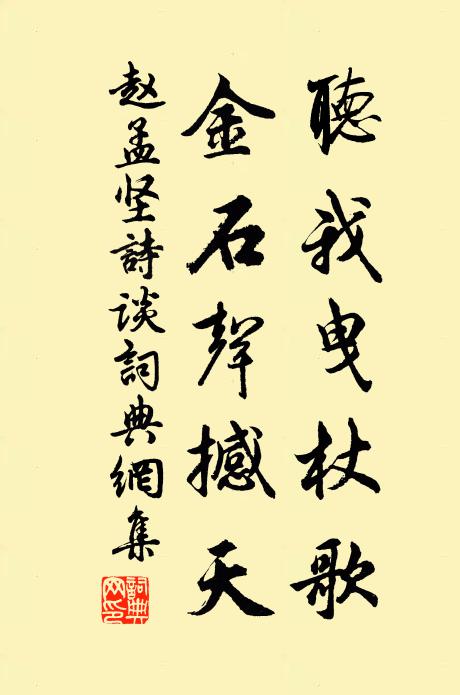 聽我曳杖歌
金石聲撼天
赵孟坚詩谈詞典網集
詞典网印